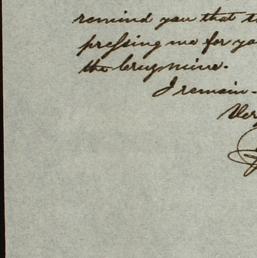 remind you that t
pressing me for yo
the
I remain
Ver